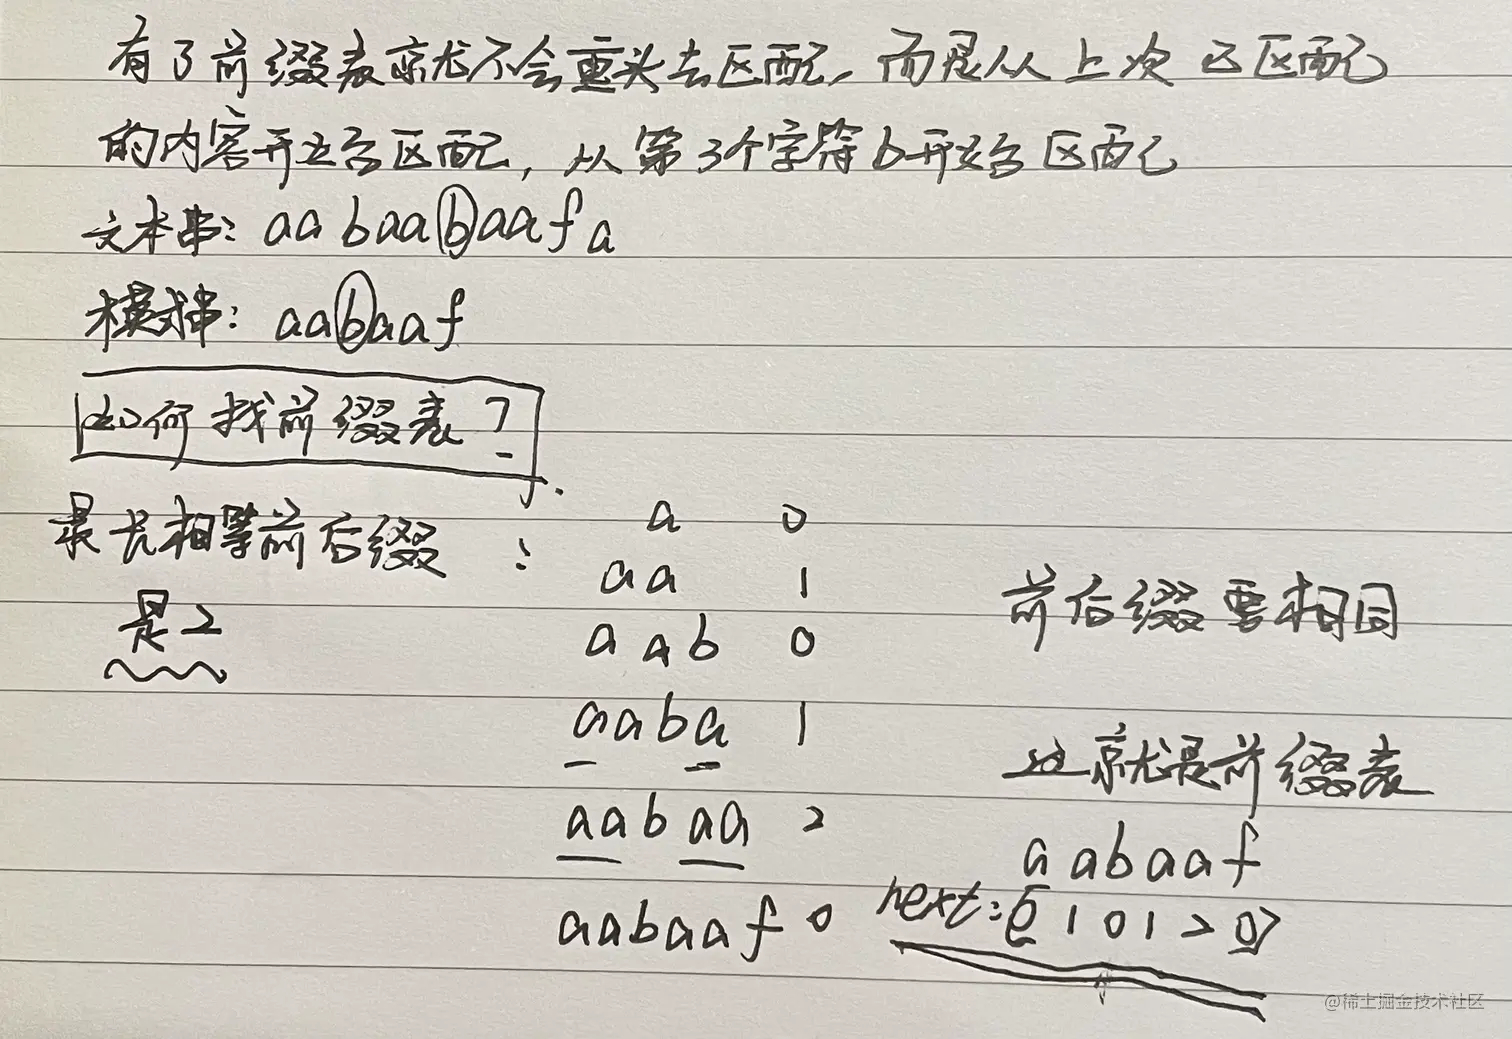 有了前缀表就不会重头去区配,而是从上次已区配
的内容开始区配,从第3个字符b开始区配
文本串: aabaabaafa
模式串: aabaaf
如何找前缀表?
最长相等前后缀:
是2
a 0
aa 1
aab 0
aaba 1
aabaa 2
aabaaf 0
前后缀要相同
这就是前缀表
aabaaf
next: [0 1 0 1 2 0]
@稀土掘金技术社区